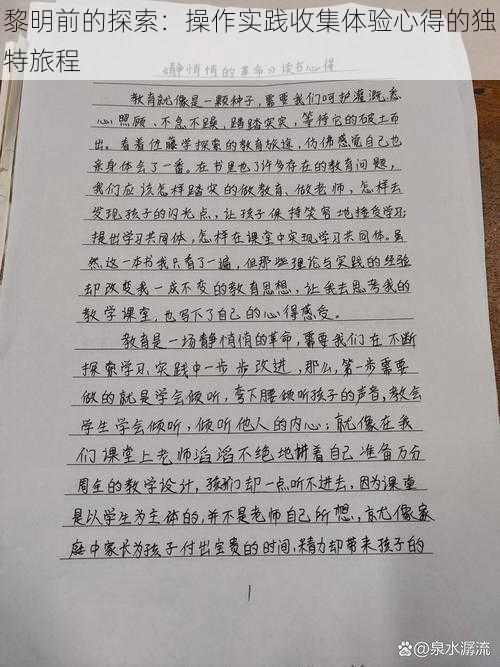 黎明前的探索：操作实践收集体验心得的独
特旅程
《静悄悄的革命》读书心得
教育就像是一颗种子，需要我们呵护灌溉、悉
心照顾、不急不躁、踏踏实实，等待它的破土而
出。看着佐藤学探索的教育旅途，仿佛感觉自己也
亲身体会了一番。在书里也了许多存在的教育问题，
我们应该怎样踏实的做教育、做老师，怎样去
发现孩子的闪光点，让孩子保持笑容地接受学习；
提出学习共同体，怎样在课堂中实现学习共同体。虽
然这一本书我只看了一遍，但那些理论与实践的经验
却改变我一成不变的教育思想，让我去思考我的
教学课堂，也写下了自己的心得感受。
教育是一场静悄悄的革命，需要我们在不断
探索学习、实践中一步步改进，那么，第一步需要
做的就是学会倾听，弯下腰倾听孩子的声音，教会
学生学会倾听，倾听他人的内心；就像在我
们课堂上老师滔滔不绝地讲着自己准备万分
周全的教学设计，孩们却一点听不进去，因为课堂
是以学生为主体的，并不是老师自己所想，就像家
庭中家长为孩子付出宝贵的时间、精力却带来孩子的
1
@泉水潺流